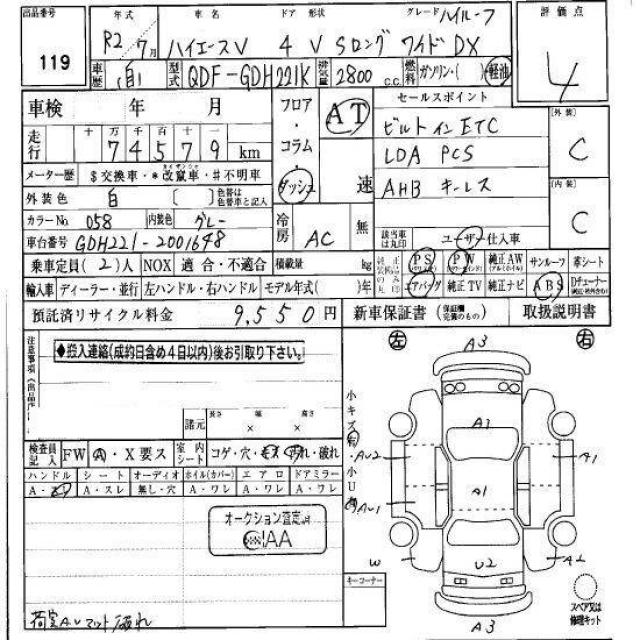 出品番号 119
年式 R2年 7月
車名 ハイエースV
ドア 形状 4 V
グレード ハイルーフ
Sロング ワイド DX
評価点 4
車歴 自
型式 QDF-GDH221K
排気量 2800 c.c.
燃料 ガソリン・( )・軽油
車検 年 月
走行 十 万 千 百 十 一
74579 km
メーター歴 $交換車・*改竄車・#不明車
外装色 白 [ ] 色替は色替車と記入
カラーNo. 058 内装色 グレー
車台番号 GDH221-2001648
フロア・コラム・ダッシュ
AT 速
冷房 AC 無
セールスポイント
ビルトインETC
LDA PCS
AHB キーレス
該当車は丸印 ユーザー仕入車
外装 C
内装 C
乗車定員(2)人 NOX 適合・不適合 積載量 kg
純正装備品のみ丸印 PS PW 純正AW サンルーフ 革シート
エアバッグ 純正TV 純正ナビ ABS Dチューナー
輸入車 ディーラー・並行 左ハンドル・右ハンドル モデル年式( )年
預託済リサイクル料金 9,550円
新車保証書 (保証書完備のもの) 取扱説明書
注意事項
◆搬入連絡(成約日含め4日以内)後お引取り下さい。
諸元 長さ × 幅 × 高さ
検査員記入 FW A・X要ス 室内シート コゲ・穴・キズ・汚れ・破れ
ハンドル シート オーディオ ホイル(カバー) エアロ ドアミラー
A・スレ A・スレ 無し・穴 A・ワレ A・ワレ A・ワレ
オークション査定
IAA
荷室AUマット破れ
左 右
A3
A1
AU2
A1
A1
AU1
W
U2
A2
A3
キーコーナー
スペア又は修理キット